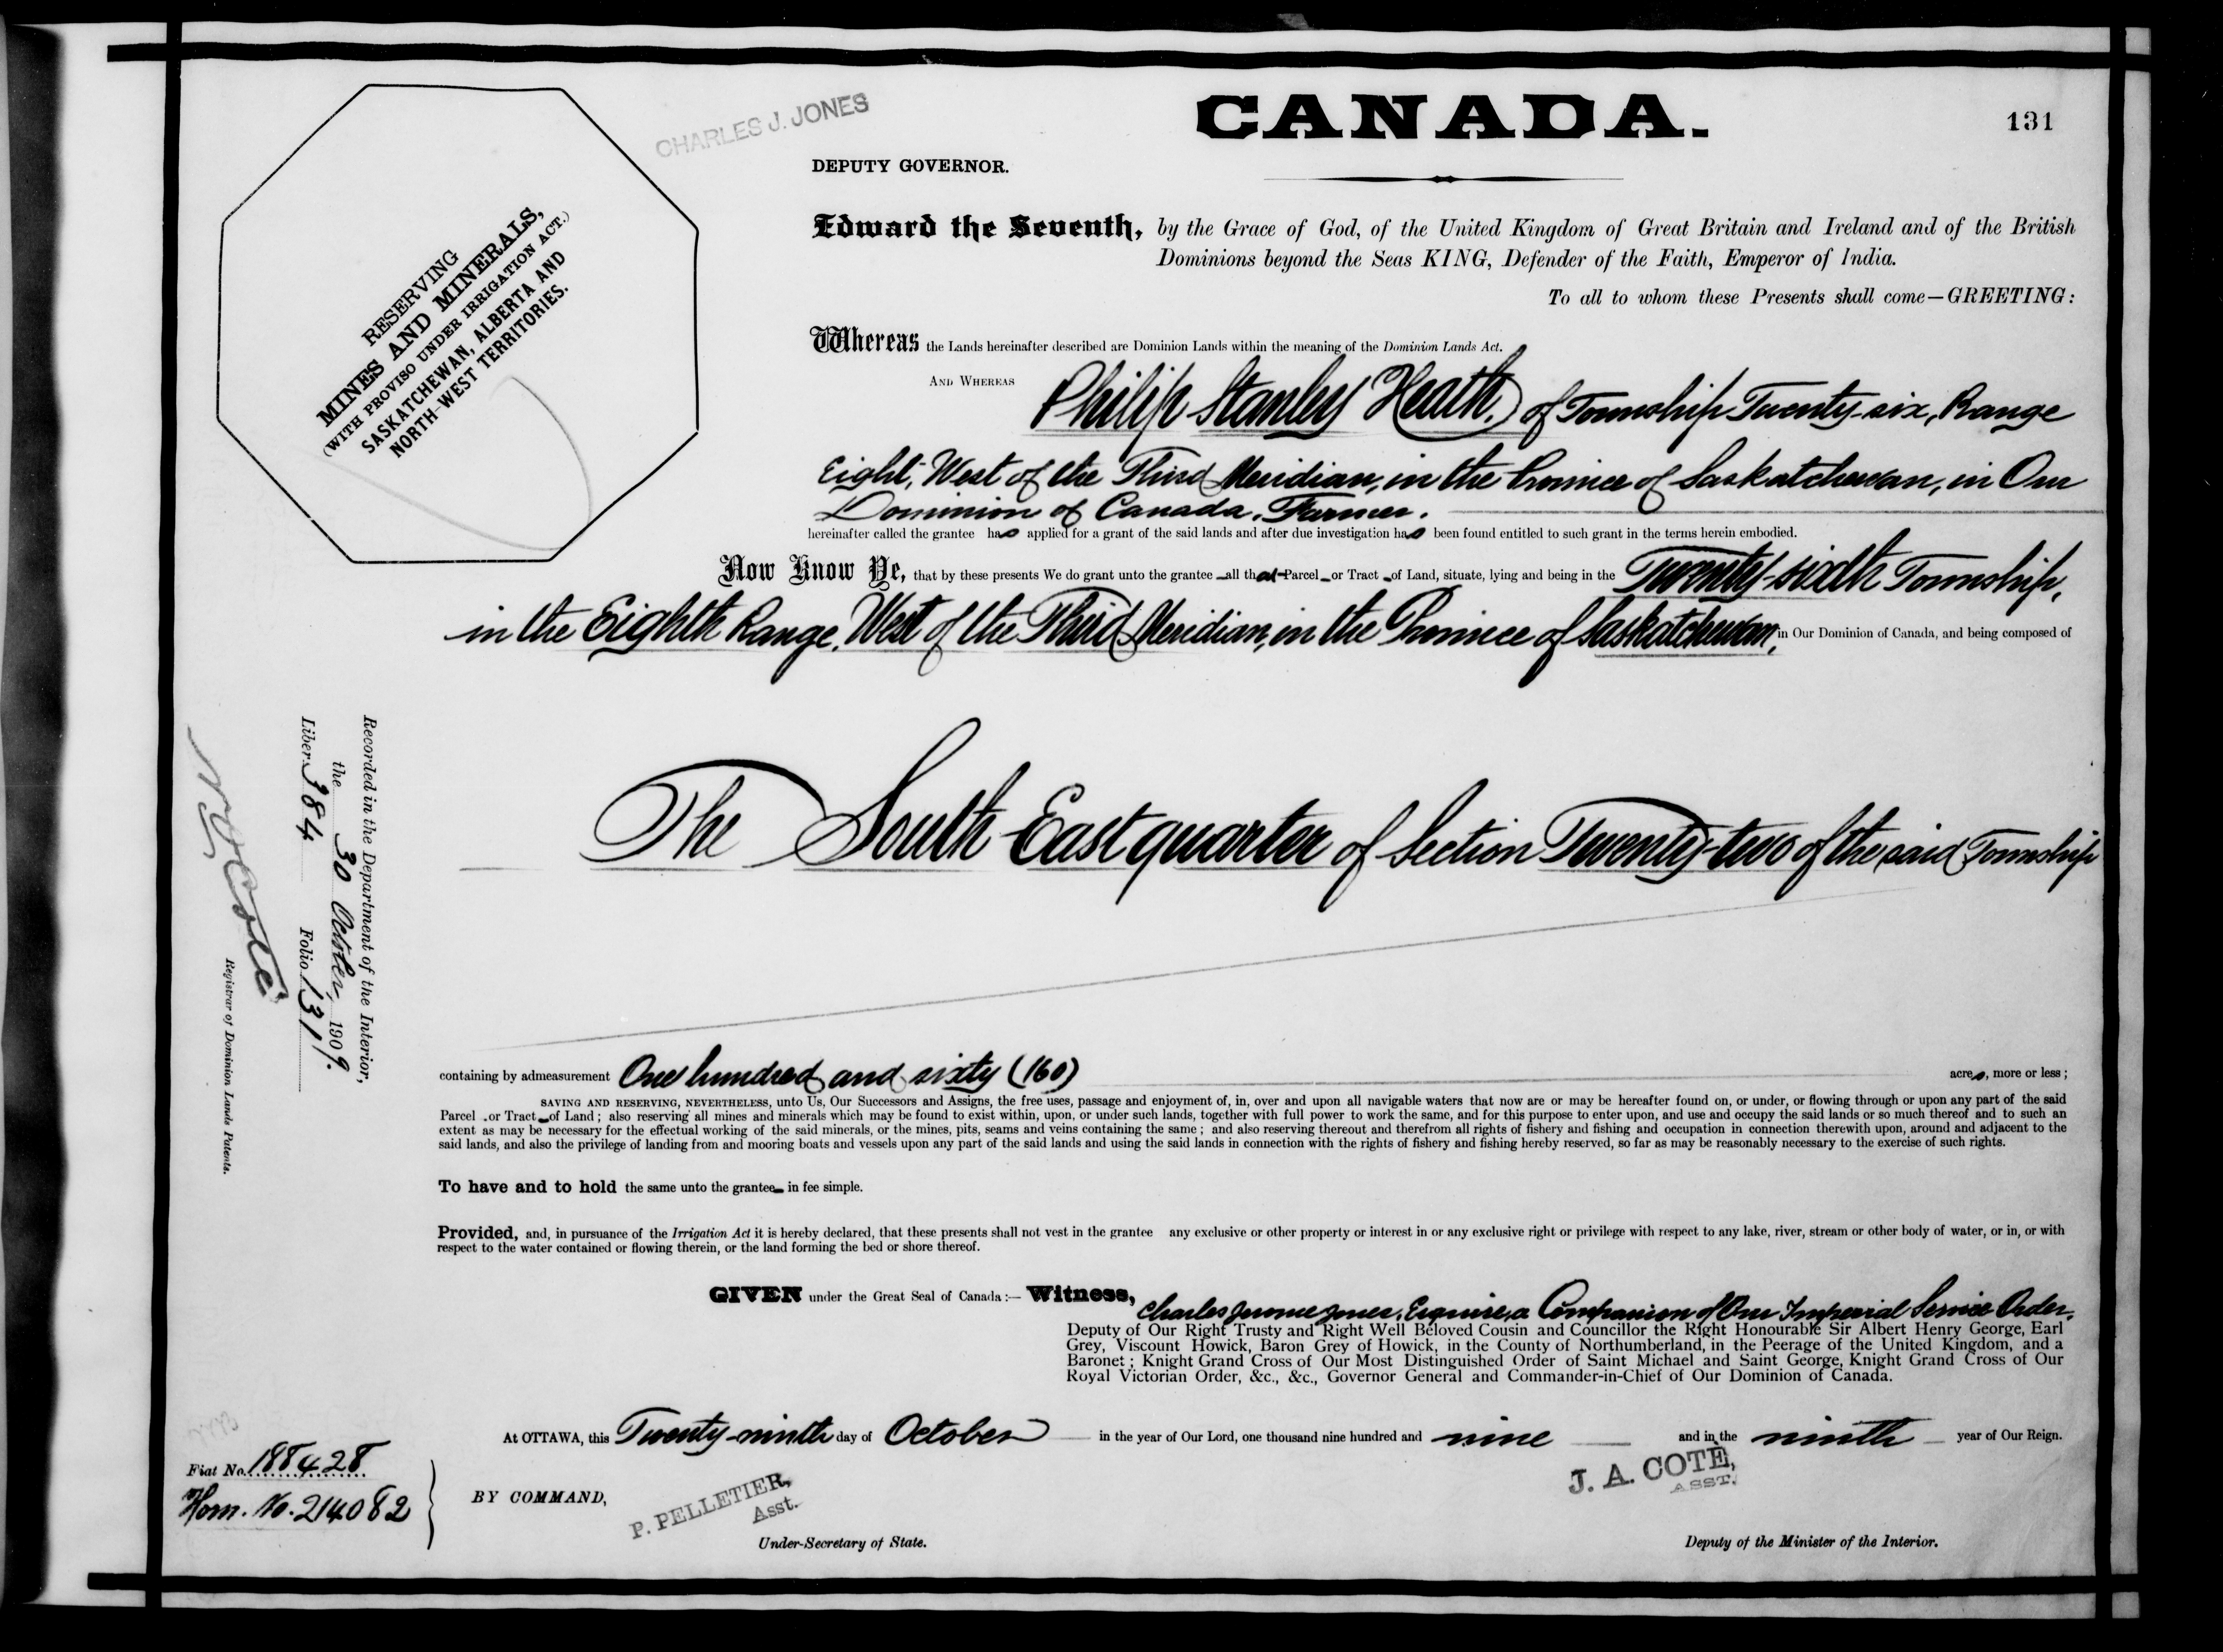 CHARLES J. JONES
CANADA.
131
DEPUTY GOVERNOR.
RESERVING
MINES AND MINERALS,
(WITH PROVISO UNDER IRRIGATION ACT.)
SASKATCHEWAN, ALBERTA AND
NORTH-WEST TERRITORIES.
Edward the Seventh, by the Grace of God, of the United Kingdom of Great Britain and Ireland and of the British
Dominions beyond the Seas KING, Defender of the Faith, Emperor of India.
To all to whom these Presents shall come—GREETING:
Whereas the Lands hereinafter described are Dominion Lands within the meaning of the Dominion Lands Act.
AND WHEREAS Philip Stanley Heath, of Township Twenty-six, Range
Eight, West of the Third Meridian, in the Province of Saskatchewan, in Our
Dominion of Canada, Farmer.
hereinafter called the grantee has applied for a grant of the said lands and after due investigation has been found entitled to such grant in the terms herein embodied.
Now Know Ye, that by these presents We do grant unto the grantee all that Parcel or Tract of Land, situate, lying and being in the Twenty-sixth Township,
in the Eighth Range, West of the Third Meridian, in the Province of Saskatchewan, in Our Dominion of Canada, and being composed of
The South East quarter of Section Twenty-two of the said Township
Recorded in the Department of the Interior,
the 30 October, 1909.
Liber 384 Folio 131
N O Coté
Registrar of Dominion Lands Patents.
containing by admeasurement One hundred and sixty (160) acres, more or less;
SAVING AND RESERVING, NEVERTHELESS, unto Us, Our Successors and Assigns, the free uses, passage and enjoyment of, in, over and upon all navigable waters that now are or may be hereafter found on, or under, or flowing through or upon any part of the said
Parcel or Tract of Land; also reserving all mines and minerals which may be found to exist within, upon, or under such lands, together with full power to work the same, and for this purpose to enter upon, and use and occupy the said lands or so much thereof and to such an
extent as may be necessary for the effectual working of the said minerals, or the mines, pits, seams and veins containing the same; and also reserving thereout and therefrom all rights of fishery and fishing and occupation in connection therewith upon, around and adjacent to the
said lands, and also the privilege of landing from and mooring boats and vessels upon any part of the said lands and using the said lands in connection with the rights of fishery and fishing hereby reserved, so far as may be reasonably necessary to the exercise of such rights.
To have and to hold the same unto the grantee in fee simple.
Provided, and, in pursuance of the Irrigation Act it is hereby declared, that these presents shall not vest in the grantee any exclusive or other property or interest in or any exclusive right or privilege with respect to any lake, river, stream or other body of water, or in, or with
respect to the water contained or flowing therein, or the land forming the bed or shore thereof.
GIVEN under the Great Seal of Canada:— Witness, Charles Jerome Jones, Esquire, a Companion of Our Imperial Service Order,
Deputy of Our Right Trusty and Right Well Beloved Cousin and Councillor the Right Honourable Sir Albert Henry George, Earl
Grey, Viscount Howick, Baron Grey of Howick, in the County of Northumberland, in the Peerage of the United Kingdom, and a
Baronet; Knight Grand Cross of Our Most Distinguished Order of Saint Michael and Saint George, Knight Grand Cross of Our
Royal Victorian Order, &c., &c., Governor General and Commander-in-Chief of Our Dominion of Canada.
At OTTAWA, this Twenty-ninth day of October in the year of Our Lord, one thousand nine hundred and nine and in the ninth year of Our Reign.
Fiat No. 188428
Hom. No. 214082
BY COMMAND,
P. PELLETIER,
Asst.
J. A. COTÉ,
ASST.
Under-Secretary of State.
Deputy of the Minister of the Interior.